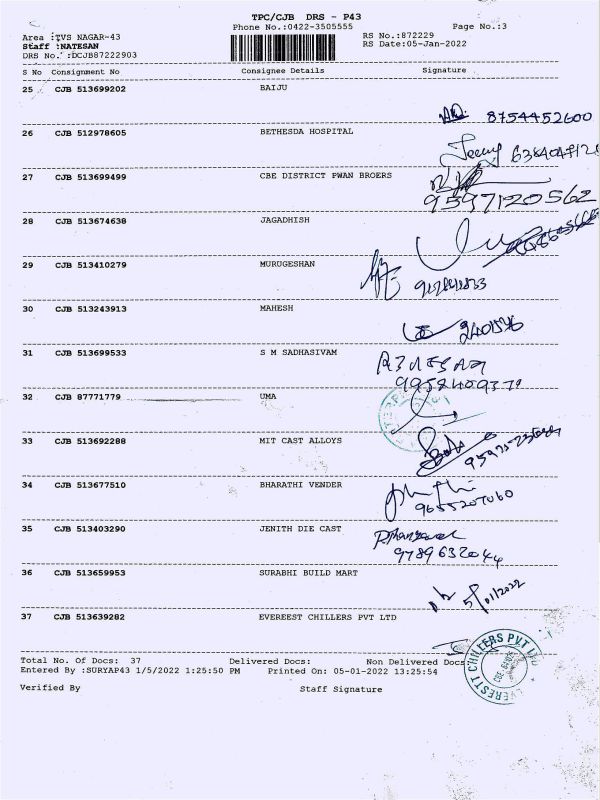 TPC/CJB DRS - P43
Phone No.:0422-3505555 Page No.:3
Area :TVS NAGAR-43 RS No.:872229
Staff :NATESAN RS Date:05-Jan-2022
DRS No. :DCJB87222903
S No Consignment No Consignee Details Signature
25 CJB 513699202 BAIJU
8754452600
26 CJB 512978605 BETHESDA HOSPITAL
27 CJB 513699499 CBE DISTRICT PWAN BROERS
9597120562
28 CJB 513674638 JAGADHISH
29 CJB 513410279 MURUGESHAN
30 CJB 513243913 MAHESH
31 CJB 513699533 S M SADHASIVAM
32 CJB 87771779 UMA
33 CJB 513692288 MIT CAST ALLOYS
34 CJB 513677510 BHARATHI VENDER
9655207060
35 CJB 513403290 JENITH DIE CAST
9789632044
36 CJB 513659953 SURABHI BUILD MART
5/01/2022
37 CJB 513639282 EVEREEST CHILLERS PVT LTD
Total No. Of Docs: 37 Delivered Docs: Non Delivered Docs
Entered By :SURYAP43 1/5/2022 1:25:50 PM Printed On: 05-01-2022 13:25:54
Verified By Staff Signature